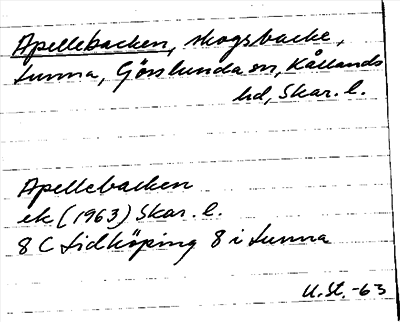 Apellebacken, skogsbacke,
Lunna, Görslunda sn, Kållands
hd, Skar. l.
Apellebacken
ek (1963) Skar. l.
8 C Lidköping 8 i Lunna
U. St. -63